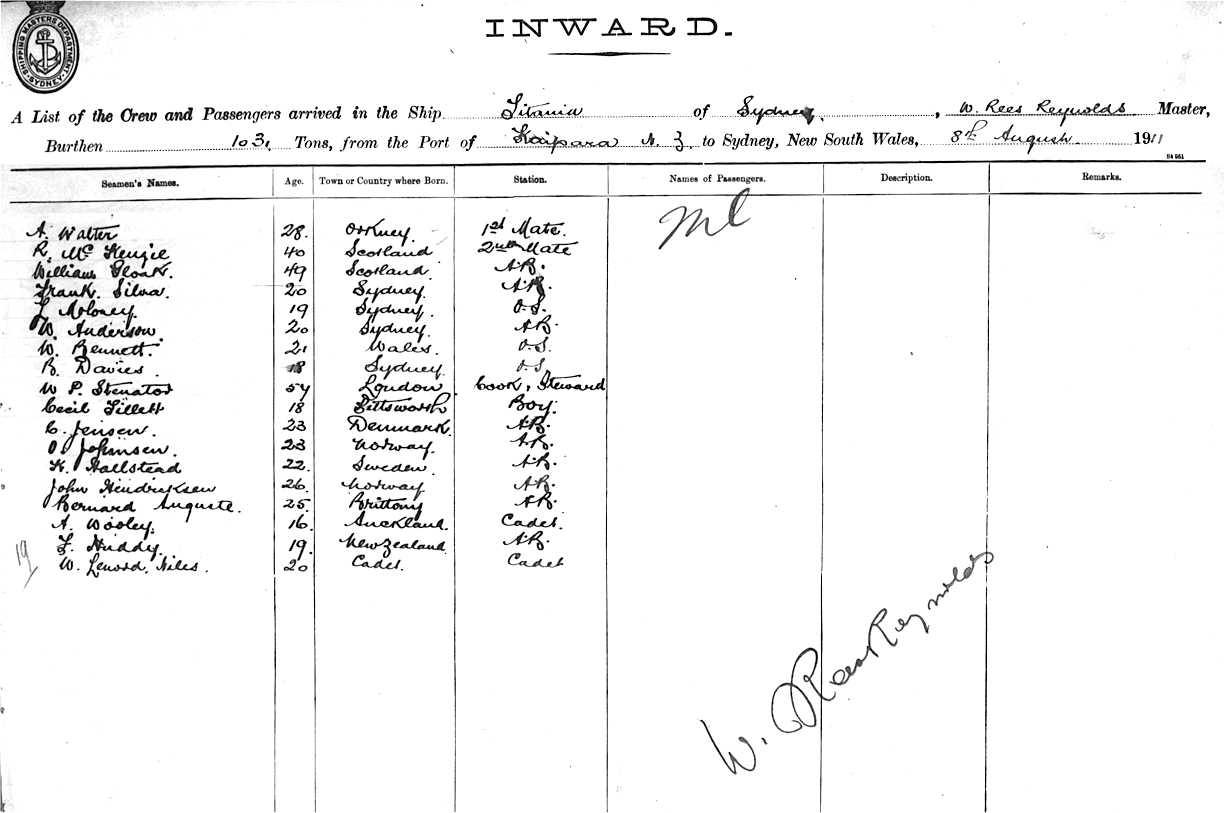 SHIPPING MASTERS DEPARTMENT SYDNEY
INWARD.
A List of the Crew and Passengers arrived in the Ship Titania of Sydney, W. Rees Reynolds Master,
Burthen 103, Tons, from the Port of Kaipara N.Z to Sydney, New South Wales, 8th August 1911
Seamen's Names. Age. Town or Country where Born. Station. Names of Passengers. Description. Remarks.
A. Walter 28. Orkney. 1st Mate.
R. Mc Kenzie 40 Scotland 2nd Mate
William 49 Scotland. A.B.
Frank. Silva. 20 Sydney. A.B.
Moloney. 19 Sydney. O.S.
W. Anderson. 20 Sydney. A.B.
W. Bennett. 21 Wales. O.S.
B. Davies. 18 Sydney. O.S.
W P. 54 London Cook, Steward
Cecil Tillett 18 Boy.
C. Jensen. 23 Denmark. A.B.
O. Johnsen. 23 Norway. A.B.
K. Hallstead 22. Sweden. A.B.
John Hendriksen 26. Norway A.B.
Bernard Auguste. 25. Brittony A.B.
A. Wooley. 16. Auckland. Cadet.
Huddy. 19. New Zealand. A.B.
19
W. Niles. 20 Cadet. Cadet
W. Rees Reynolds